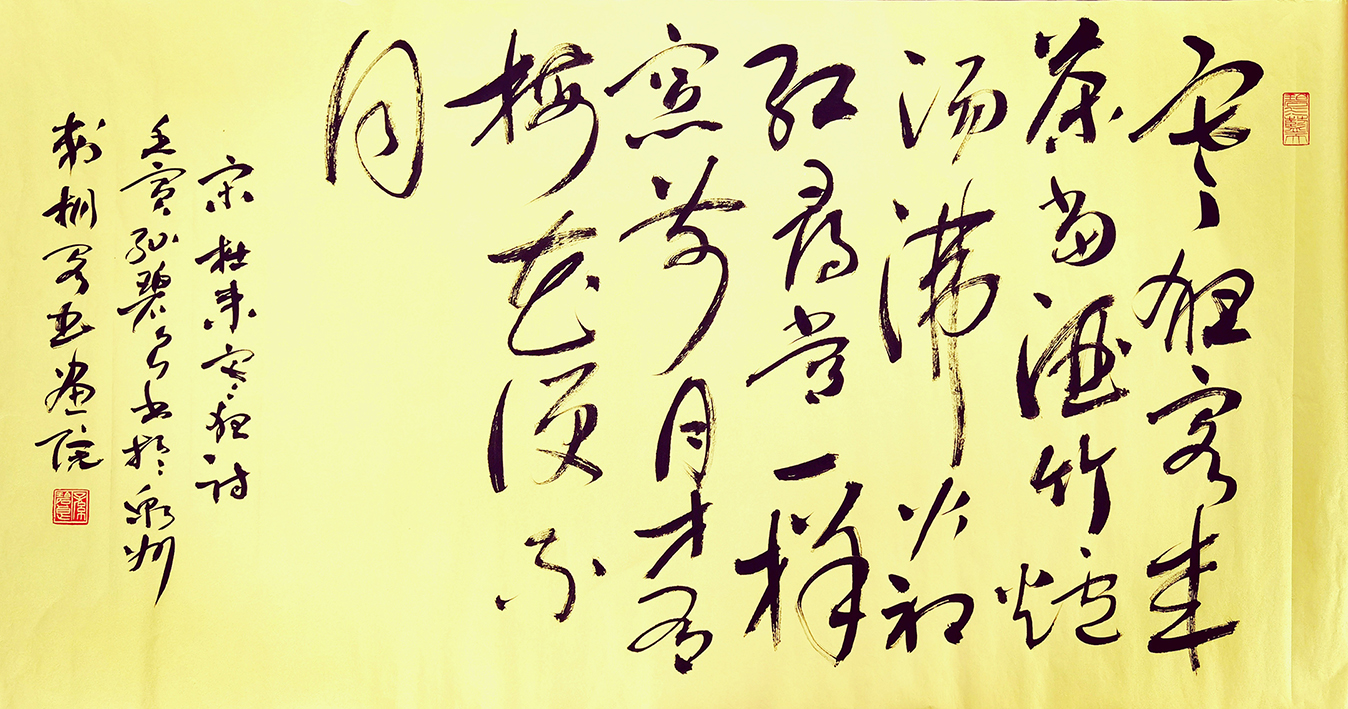 寒夜客来
茶当酒竹爐
汤沸火初
红寻常一样
窗前月才有
梅花便不
同
宋杜耒寒夜诗
壬寅孙碧良书於泉州
刺桐阁书画院